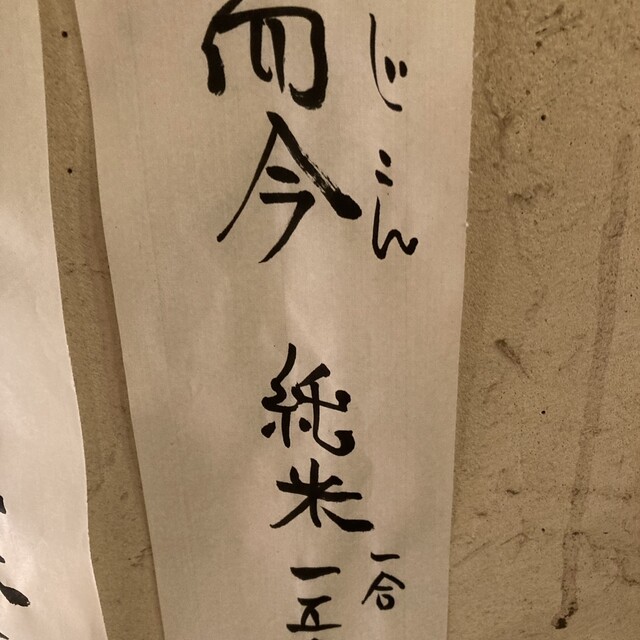 而今
じこん
純米
一合
一五